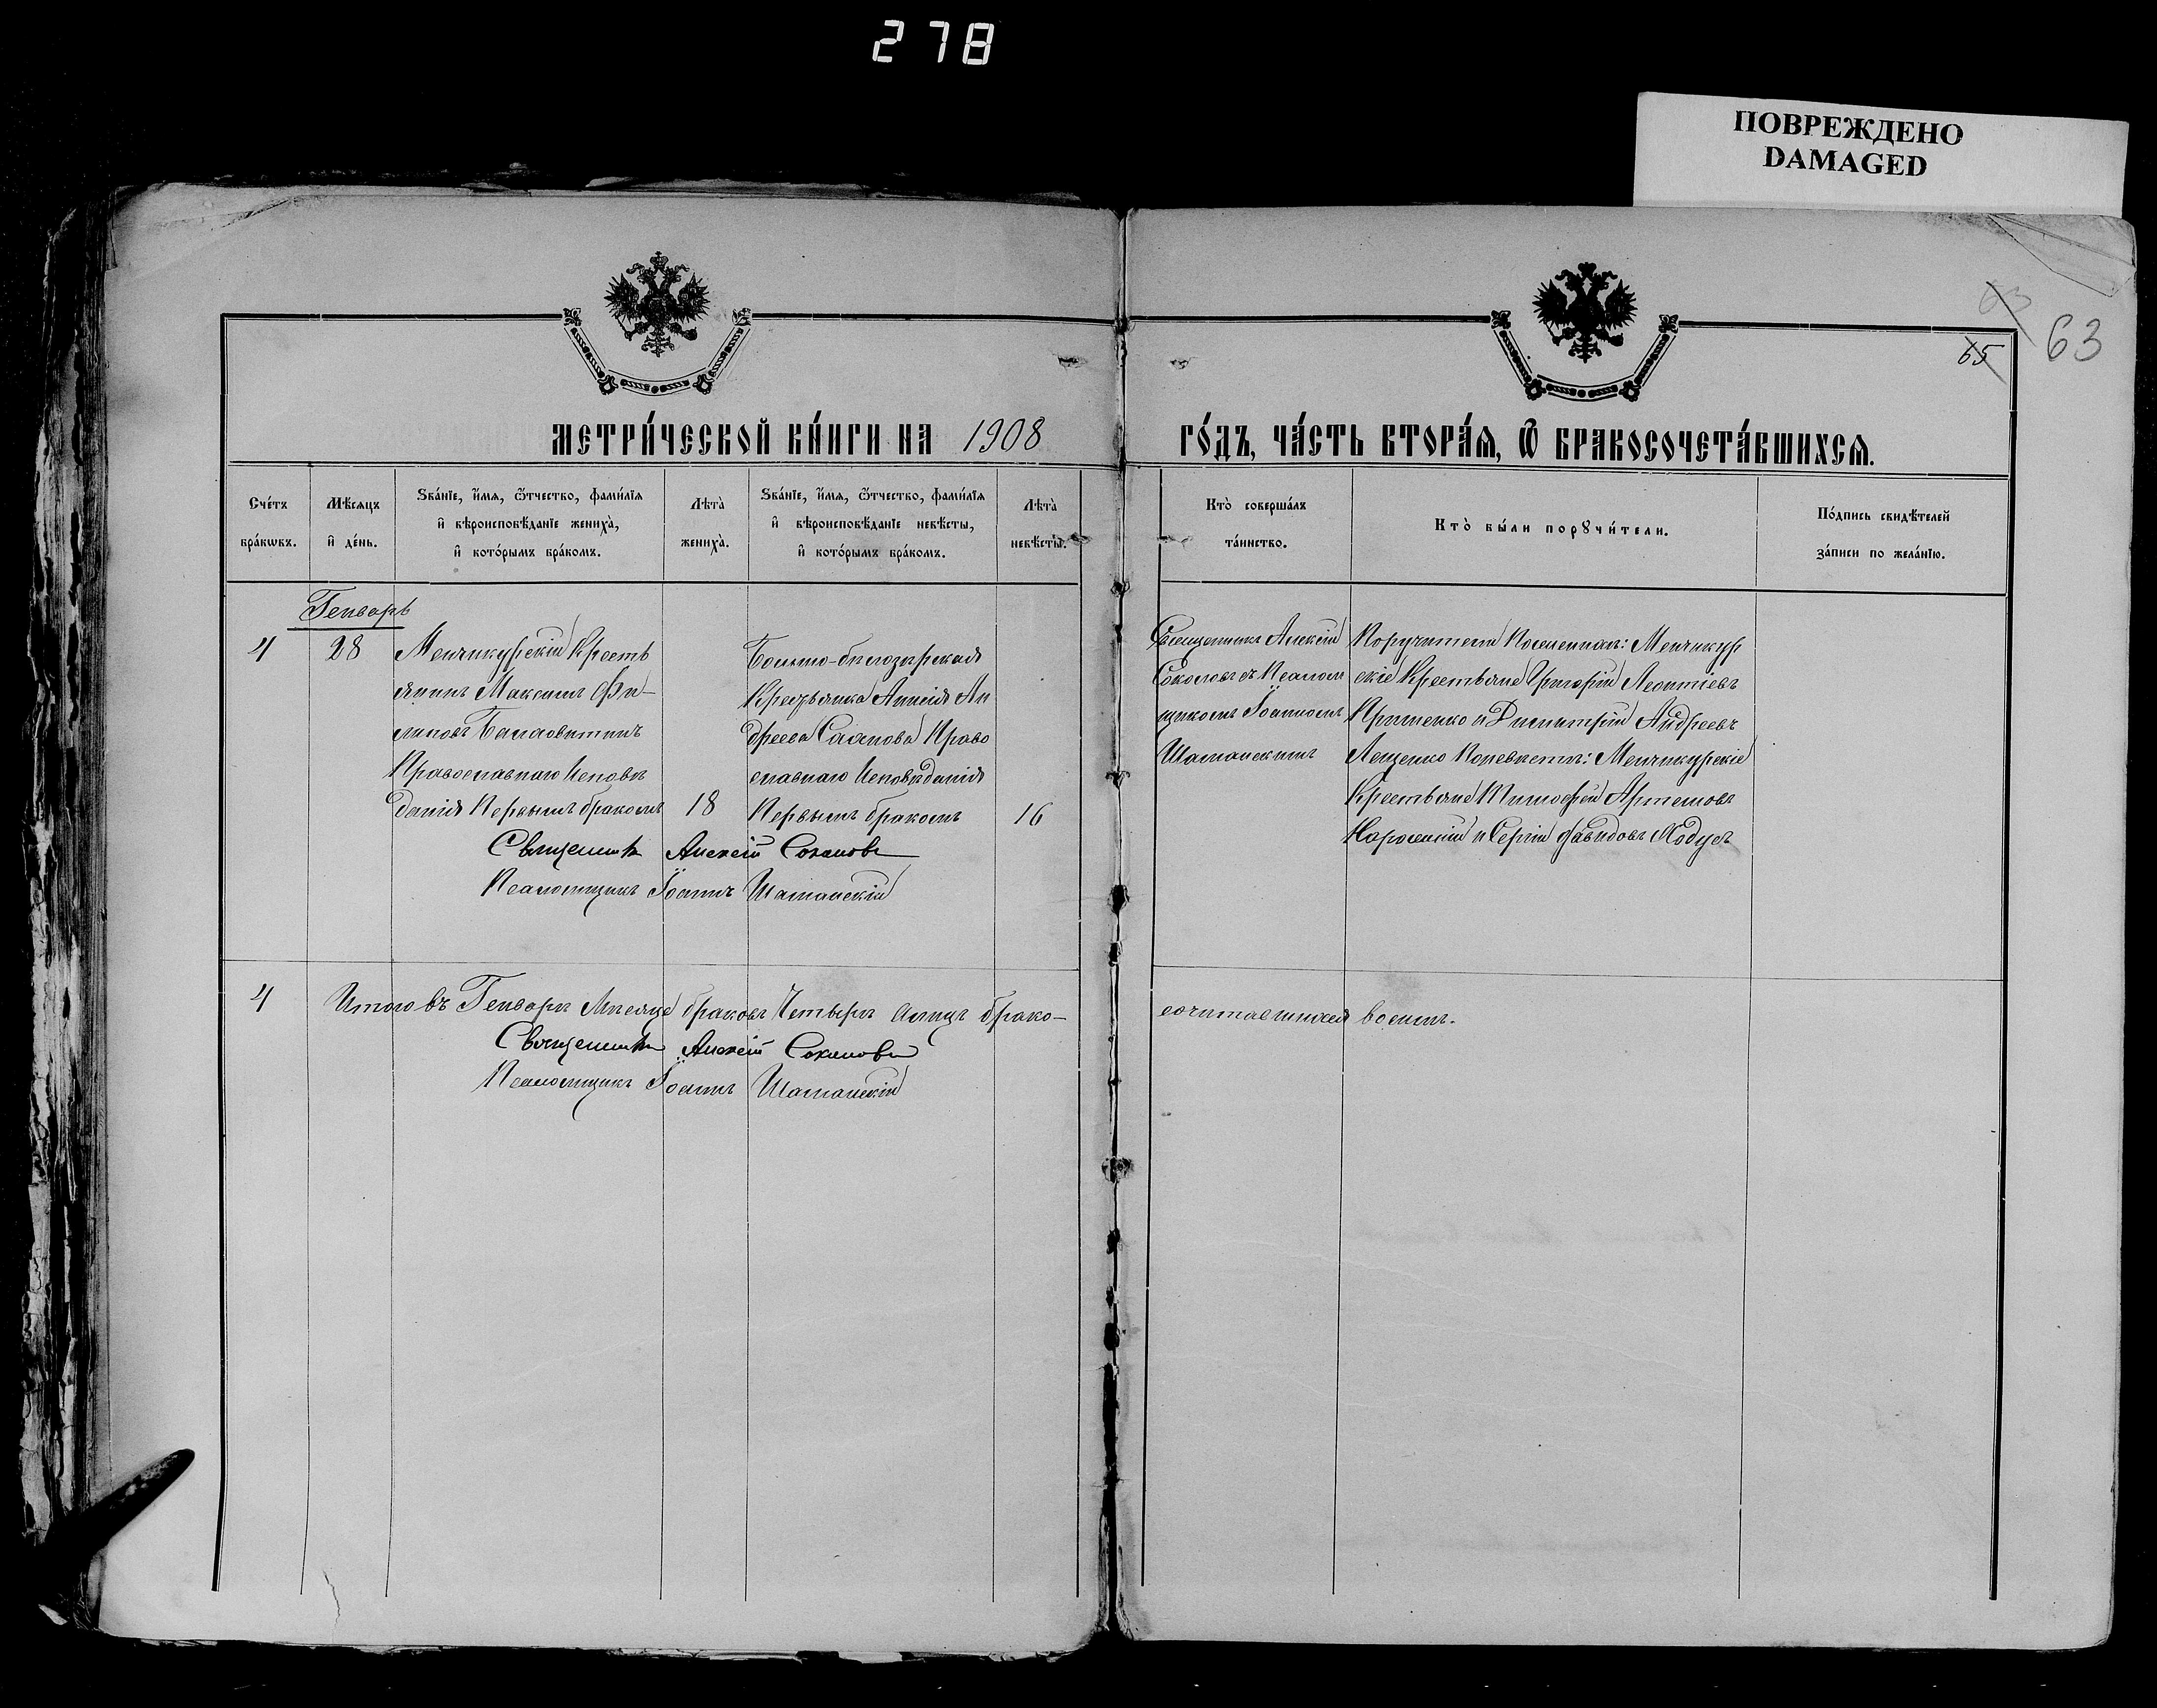 278
ПОВРЕЖДЕНО
DAMAGED
63
65
63
МЕТРИ́ЧЕСКОЙ КНИ́ГИ НА 1908
ГО́ДЪ, ЧА́СТЬ ВТОРА́Я, Ѿ БРАКОСОЧЕТА́ВШИХСЯ.
Сче́тъ
бра́кѡвъ.
Мѣ́сяцъ
и де́нь.
Ѕва́нїе, и́мѧ, ѻ́тчество, фами́лїѧ
и҆ вѣроисповѣ́данїе жениха̀,
и҆ кото́рымъ бра́комъ.
Лѣта̀
жениха̀.
Ѕва́нїе, и́мѧ, ѻ́тчество, фами́лїѧ
и҆ вѣроисповѣ́данїе невѣ́сты,
и҆ кото́рымъ бра́комъ.
Лѣта̀
невѣ́сты.
Кто̀ соверша́лъ
та́инство.
Кто̀ бы́ли порꙋчи́тели.
По́дпись свидѣ́телей
за́писи по жела́нїю.
Генварь
4
28
Менчикурскій Кресть
янинъ Максимъ Фи-
липовъ
Православнаго Исповѣ
данія Первымъ бракомъ
18
Больше-бѣлозерская
Крестьянка Анисія Ан
дреева Салпова Право
славнаго Исповѣданія
Первымъ бракомъ
16
Священникъ Алексій
Соколовъ съ Псалом
щикомъ Іоанномъ
Шаманскимъ
Поручители По женихѣ: Менчикур
скіе Крестьяне Григорій Леонтіевъ
и Димитрій Андреевъ
Лещенко По невѣстѣ: Менчикурскіе
Крестьяне Тимофей Артемовъ
и Сергій Давидовъ
Священникъ Алексій Соколовъ
Псаломщикъ Іоаннъ Шаманскій
4
Итого въ Генварѣ Мѣсяцѣ браковъ Четыре а лицъ брако-
сочитавшихся восемь.
Священникъ Алексій Соколовъ
Псаломщикъ Іоаннъ Шаманскій